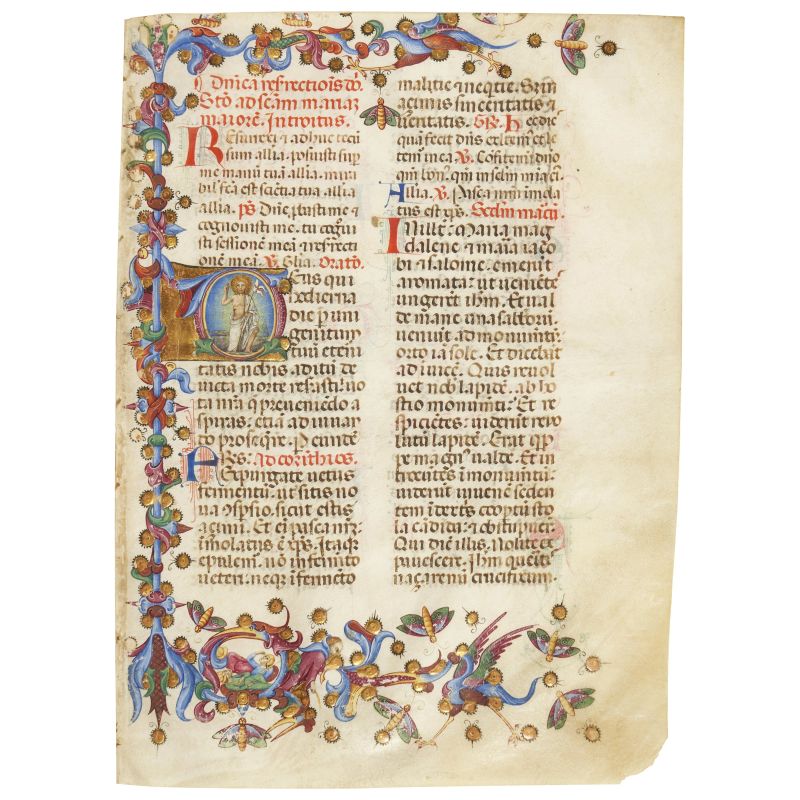 Dñica resrectiois dō.
Stō ad scām mariaʒ
maiorē. Introitus.
Resurrexi ⁊ adhuc tecū
sum allīa. posuisti sup
me manū tuā allīa. mira
bil' fcā est scientia tua allīa
allīa. pō Dñe pbasti me ⁊
cognouisti me. tu cogui
sti sessionē meā ⁊ resrecti
onē meā. ℣. Glīa. Oratō.
Deus qui
hodierna
die p uni
genitum
tuū eterni
tatis nobis aditū de
uicta morte reserasti: uo
ta nr̄a q̄ preueniēdo a
spiras: etiā adiuuan
do proseqre. P eundē
Ad corīthios.
Frēs: Expurgate uetus
fermentū: ut sitis no
ua ɔspsio. sicut estis
açimi. Et eī pasca nr̄m
īmolatus ē xp̄s. Itaqʒ
epulemʳ. nō ī fermēto
ueteri: neqʒ ī fermēto
malitie ⁊ neqtie. Sʒ in
açimis sinceritatis ⁊
ueritatis. Gr̄. Hec dies
quā fecit dn̄s exltem ⁊ le
tem ī ea. ℣. Cōfitemī dn̄o
qm̄ bonʳ. qm̄ in sclm̄ mīa eiʳ.
Allīa. ℣. Pasca nr̄m īmola
tus est xp̄s. Secdm̄ marcū.
In ill' t'. Maria mag
dalene ⁊ maria iaco
bi ⁊ salome: emerūt
aromata: ut ueniētes
ungerēt ihm̄. Et ual
de mane una sabbotū:
ueniūt ad monumtū:
orto iā sole. Et dicebāt
ad iuicē. Quis reuol
uet nob̄ lapidē. ab ho
stio monumti: Et re
spiciētes: uiderūt reuo
lutū lapidē. Erat qpp
pe magnʳ ualde. Et in
troeūtes ī monumtū:
uiderūt iuuenē seden
tem ī dextʳs. cooptū sto
la cādida: ⁊ obstupuerūt.
Qui dic̄ illis. Nolite ex
pauescere. Ihm̄ queritis
naçarenū crucifixum.